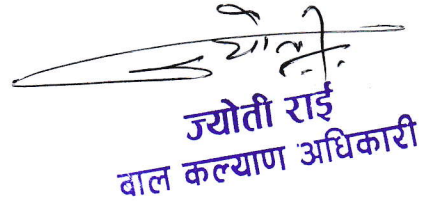 ज्योती राई
वाल कल्याण अधिकारी